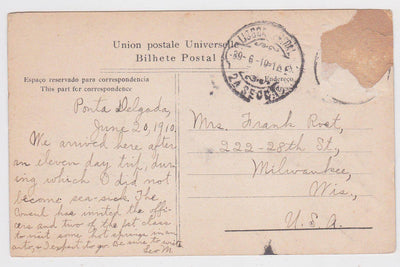 Union postale Universelle
Bilhete Postal
Espaço reservado para correspondencia
This part for correspondence
Endereço
LISBOA
6-10
2A SECÇÃO
Ponta Delgada,
June 20, 1910.
We arrived here after
an eleven day trip, dur-
ing which I did not
become sea-sick. The
Consul has invited the offi-
cers and two of the 1st class
to visit some hot springs in an
auto, & I expect to go. Be sure to write
Geo M.
Mrs. Frank Rost,
222-28th St,
Milwaukee,
Wis.,
U.S.A.